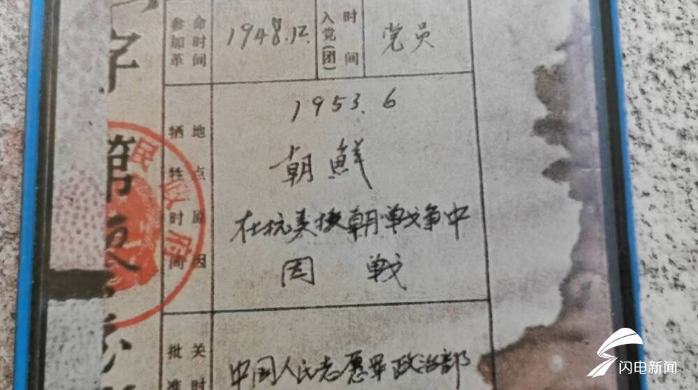 字第
参加革命时间
1948.12.
入党(团)时间
党员
牺牲时间地点原因
1953.6
朝鲜
在抗美援朝战争中
因战
民政府
批准
关
时
中国人民志愿军政治部
闪电新闻